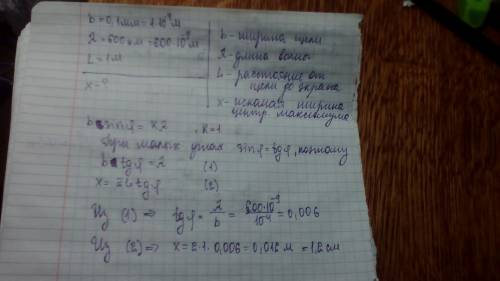 b = 0,1мм = 1·10⁻⁴м
λ = 600нм = 600·10⁻⁹м
L = 1м
x - ?
b - ширина щели
λ - длина волны
L - расстояние от
щели до экрана
x - искомая ширина
центр. максимума
b sinφ = kλ , k=1
При малых углах sinφ=tgφ, поэтому
b tgφ = λ (1)
x = 2L tgφ (2)
Из (1) ⇒ tgφ = λ/b = 600·10⁻⁹/10⁻⁴ = 0,006
Из (2) ⇒ x = 2·1·0,006 = 0,012 м = 1,2 см